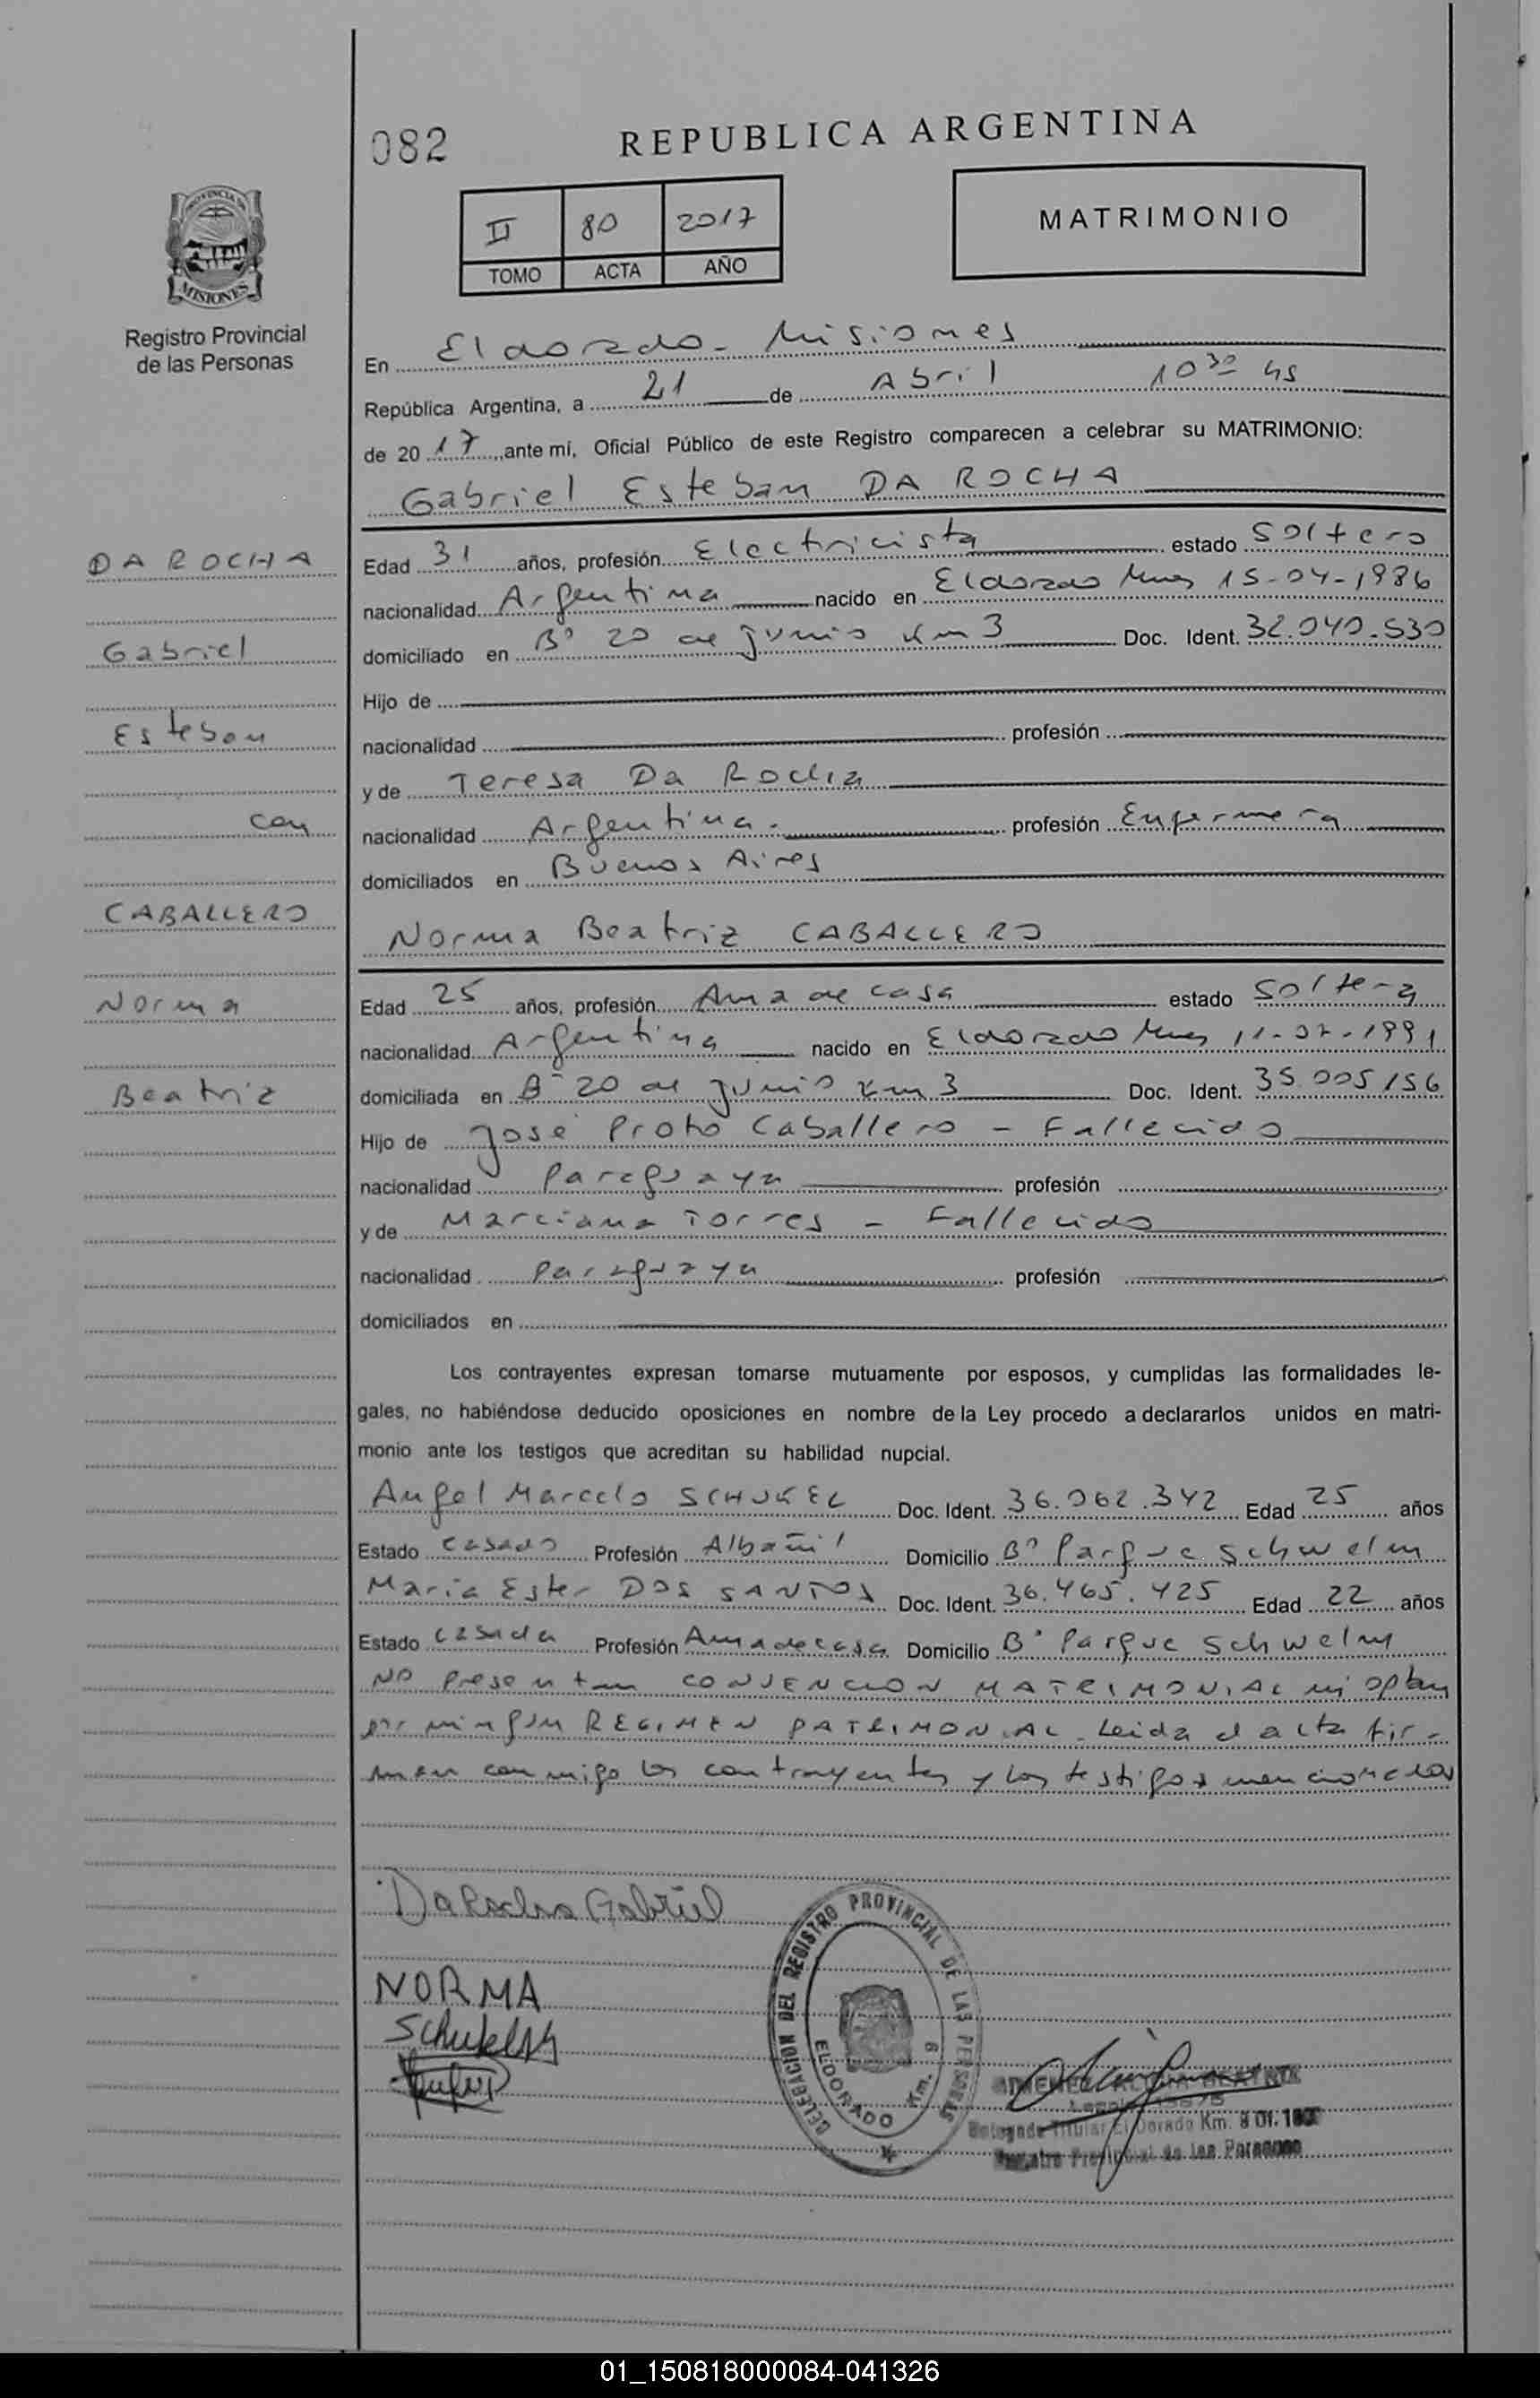 082
REPUBLICA ARGENTINA
II 80 2017
TOMO ACTA AÑO
MATRIMONIO
PROVINCIA DE
MISIONES
Registro Provincial
de las Personas
En Eldorado - Misiones
República Argentina, a 21 de Abril 10 30 hs
de 2017, ante mí, Oficial Público de este Registro comparecen a celebrar su MATRIMONIO:
Gabriel Esteban DA ROCHA
DA ROCHA
Gabriel
Esteban
con
CABALLERO
Norma
Beatriz
Edad 31 años, profesión Electricista estado Soltero
nacionalidad Argentina nacido en Eldorado Mnes 15-04-1986
domiciliado en Bº 20 de junio Km 3 Doc. Ident. 32.040.530
Hijo de
nacionalidad profesión
y de Teresa Da Rocha
nacionalidad Argentina. profesión Enfermera
domiciliados en Buenos Aires
Norma Beatriz CABALLERO
Edad 25 años, profesión Ama de casa estado Soltera
nacionalidad Argentina nacido en Eldorado Mnes 11-07-1991
domiciliada en Bº 20 de junio Km 3 Doc. Ident. 35.005.156
Hijo de José Proto Caballero - Fallecido
nacionalidad Paraguaya profesión
y de Marciana Torres - Fallecido
nacionalidad Paraguaya profesión
domiciliados en
Los contrayentes expresan tomarse mutuamente por esposos, y cumplidas las formalidades le-
gales, no habiéndose deducido oposiciones en nombre de la Ley procedo a declararlos unidos en matri-
monio ante los testigos que acreditan su habilidad nupcial.
Angel Marcelo SCHUKEL Doc. Ident. 36.062.342 Edad 25 años
Estado Casado Profesión Albañil Domicilio Bº Parque Schwelm
Maria Ester DOS SANTOS Doc. Ident. 36.465.425 Edad 22 años
Estado Casada Profesión Ama de casa Domicilio Bº Parque Schwelm
No presentan CONVENCION MATRIMONIAL ni optan
por ningun REGIMEN PATRIMONIAL. Leida el acta fir-
man conmigo los contrayentes y los testigos mencionados
Da Rocha Gabriel
NORMA
Schukel
DELEGACION DEL REGISTRO PROVINCIAL DE LAS PERSONAS
ELDORADO Km. 9
Delegada Titular El Dorado Km. 9 Of.
Registro Provincial de las Personas
01_150818000084-041326